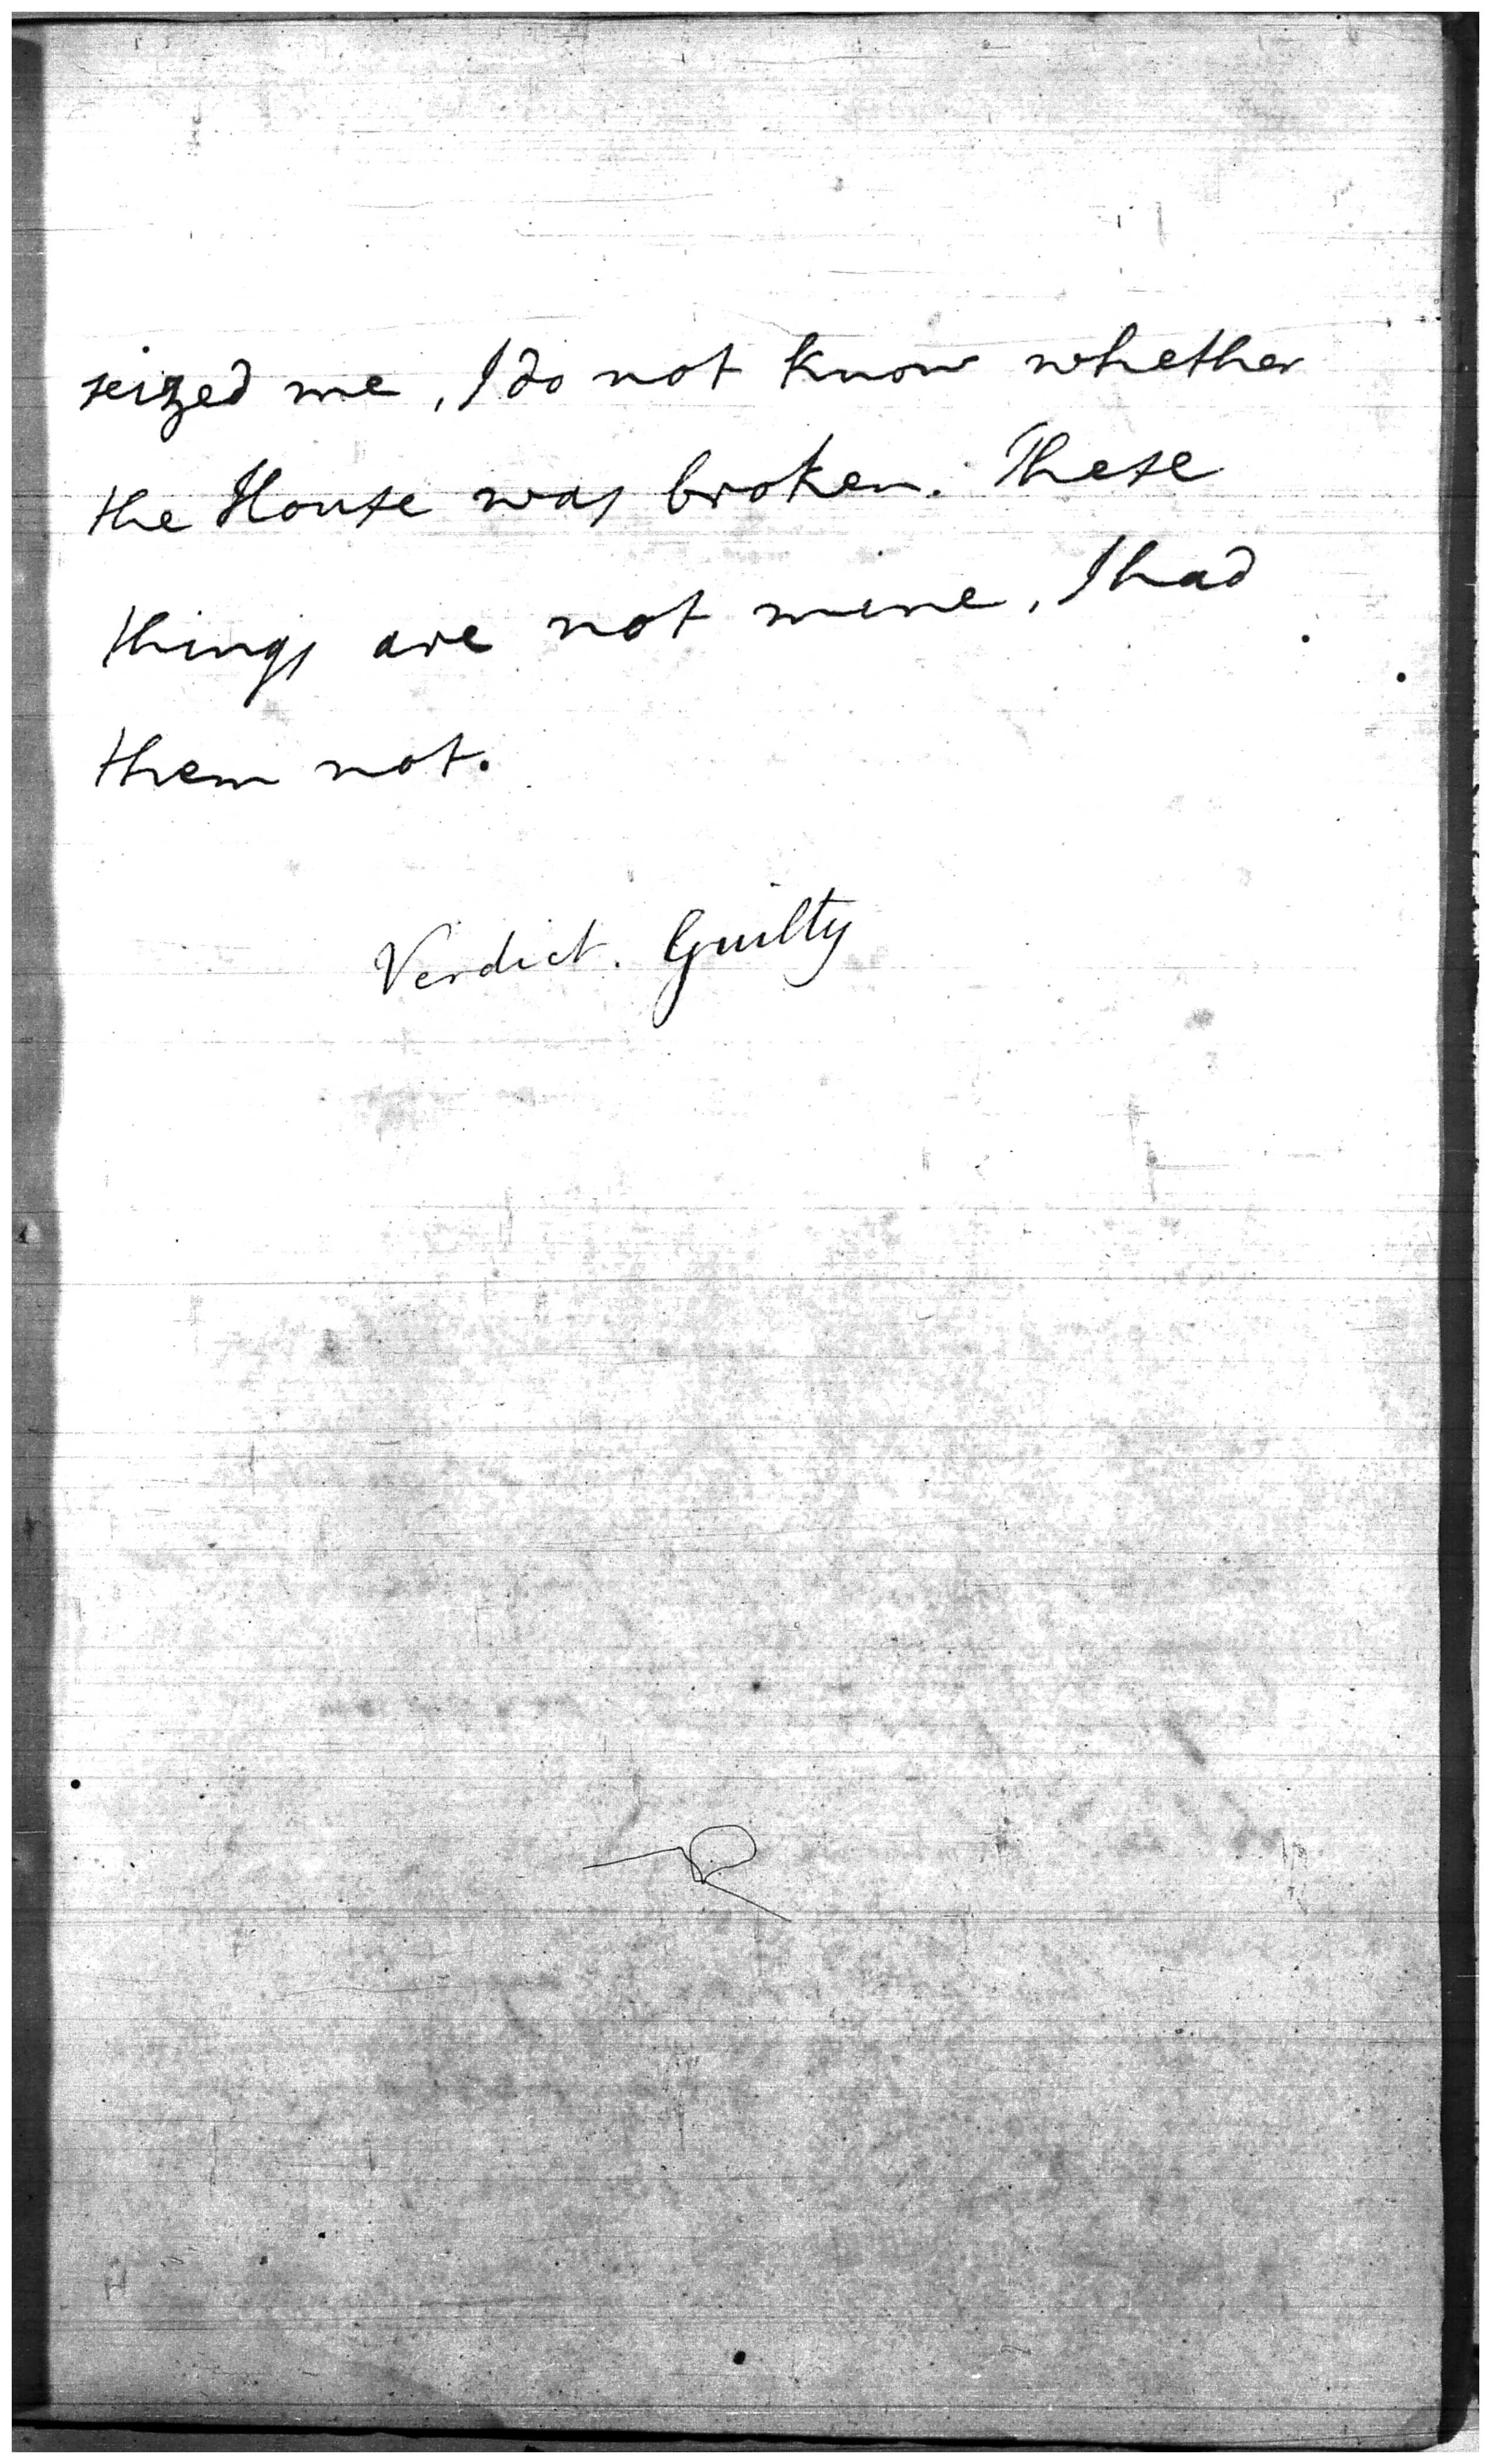 seized me, I do not know whether
the House was broken. These
things are not mine, I had
them not.
Verdict. Guilty